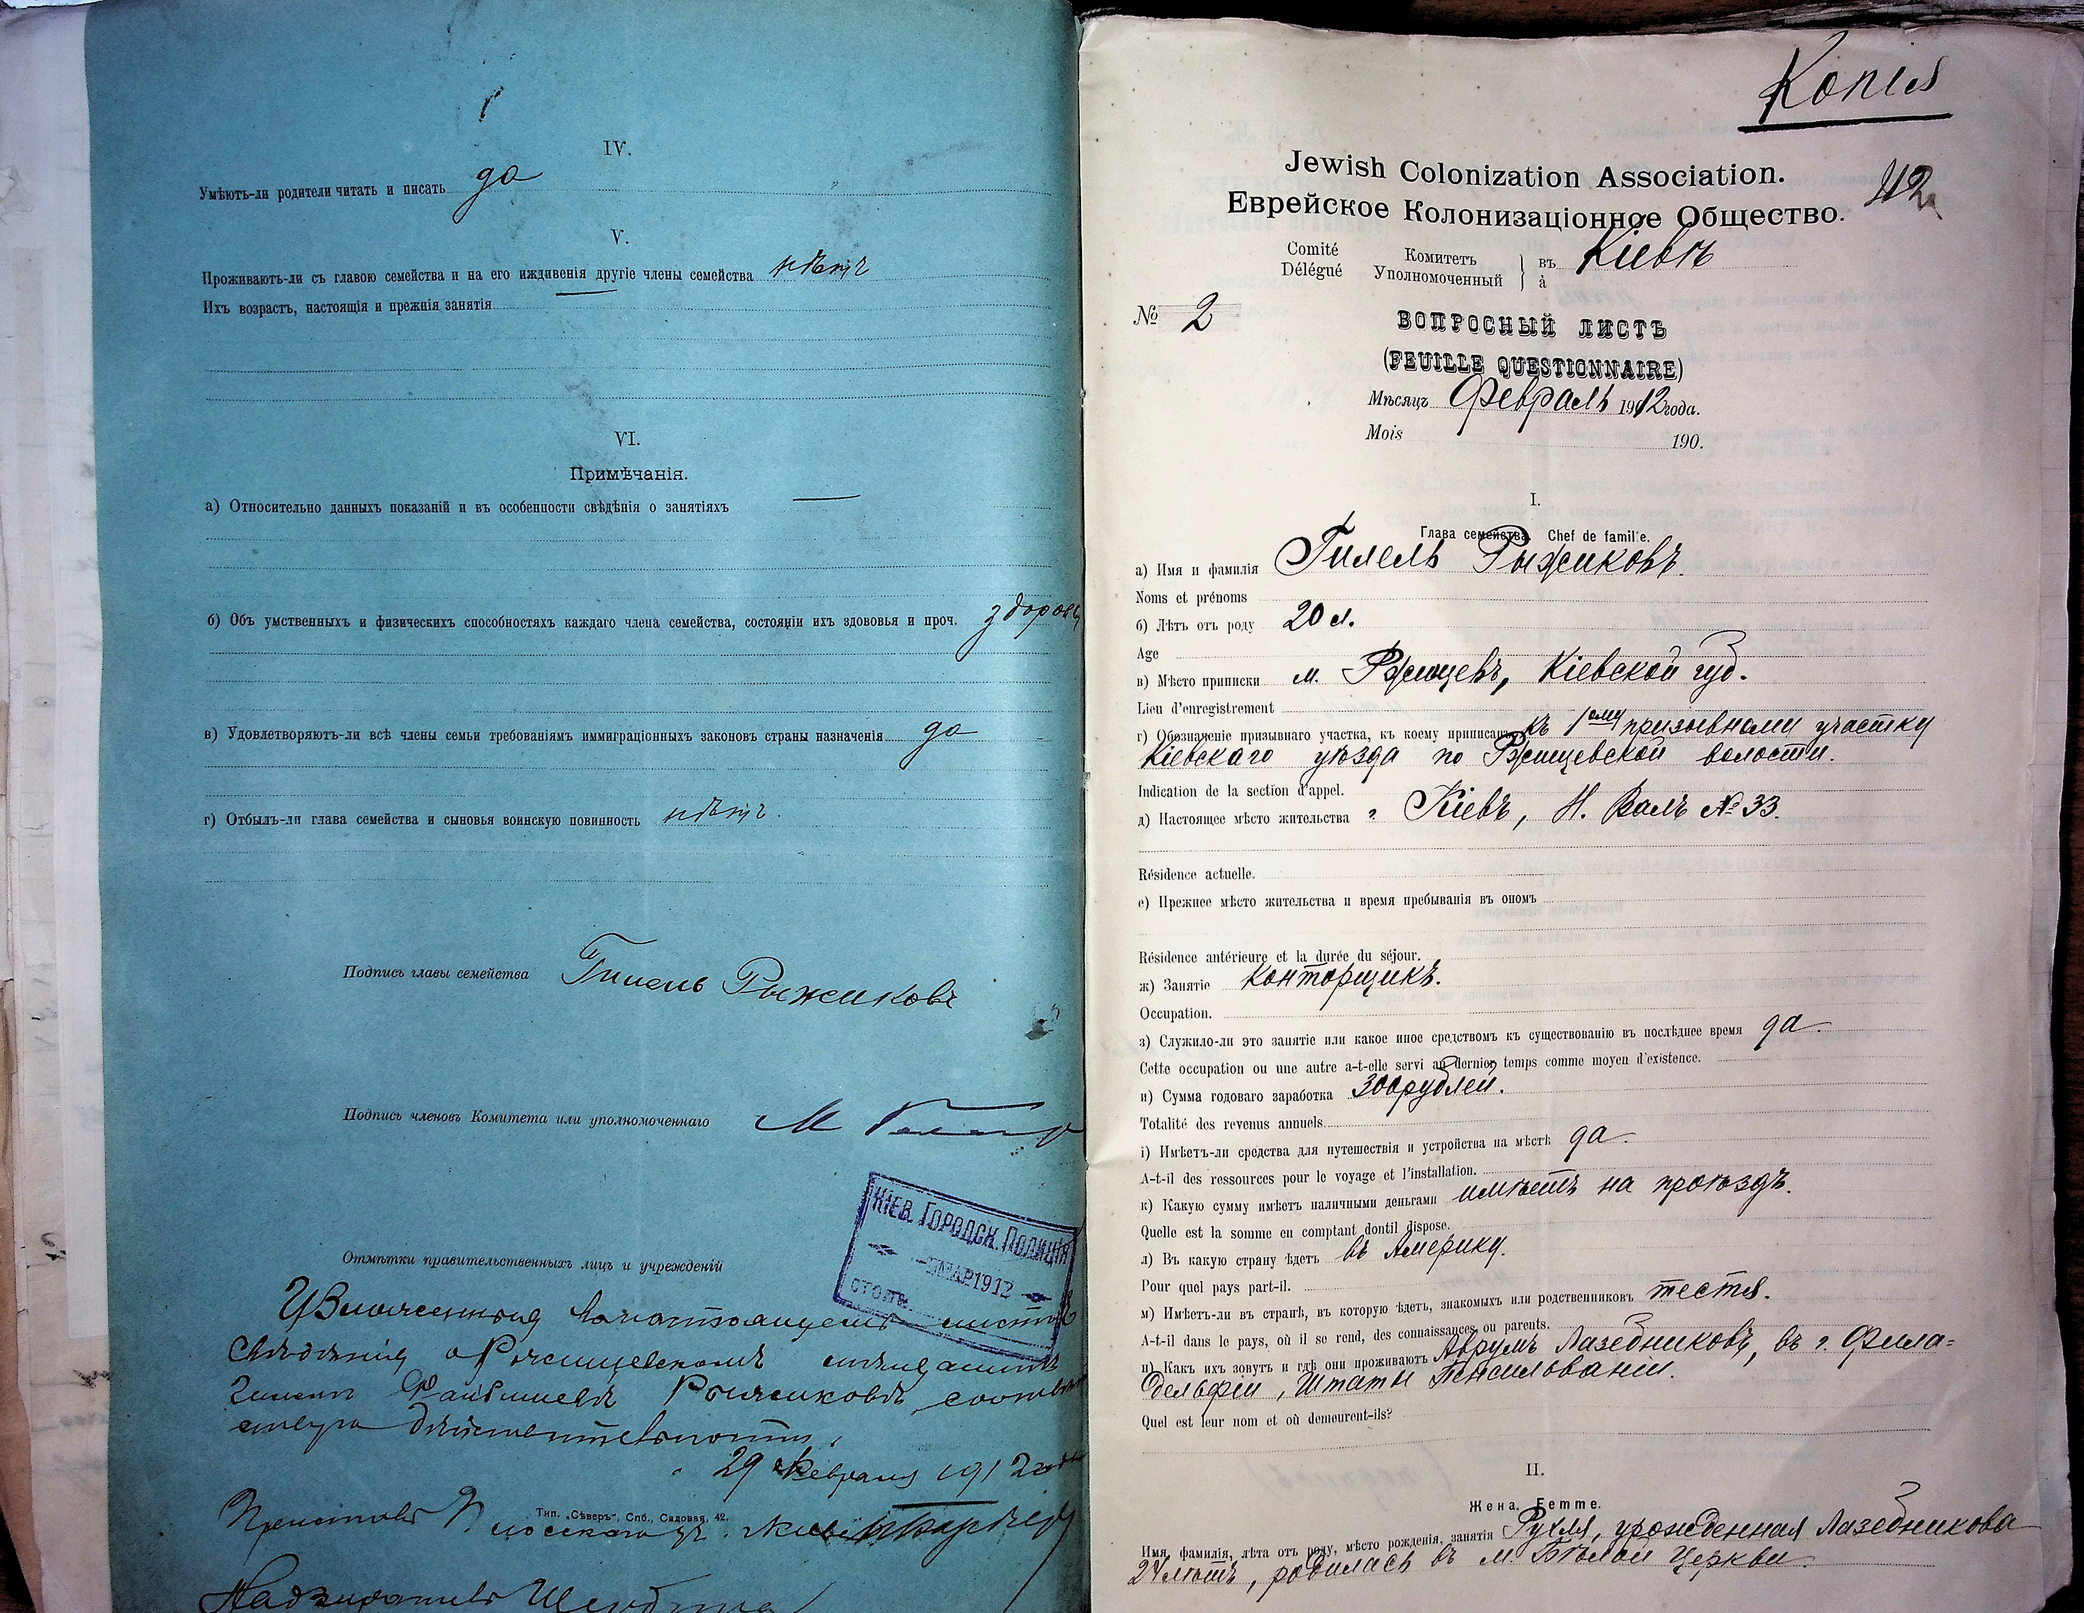 IV.
Умѣютъ-ли родители читать и писать да
V.
Проживаютъ-ли съ главою семейства и на его иждивенія другіе члены семейства нѣтъ
Ихъ возрастъ, настоящія и прежнія занятія
VI.
Примѣчанія.
а) Относительно данныхъ показаній и въ особенности свѣдѣнія о занятіяхъ
б) Объ умственныхъ и физическихъ способностяхъ каждаго члена семейства, состояніи ихъ здововья и проч. здоровы
в) Удовлетворяютъ-ли всѣ члены семьи требованіямъ иммиграціонныхъ законовъ страны назначенія да
г) Отбылъ-ли глава семейства и сыновья воинскую повинность нѣтъ.
Подпись главы семейства Гилель Рыжиковъ
Подпись членовъ Комитета или уполномоченнаго М
КІЕВ. ГОРОДСК. ПОЛИЦІЯ
МАР 1912
СТОЛЪ
Отмѣтки правительственныхъ лицъ и учрежденій
листѣ
свѣдѣнія о Ржищевскомъ мѣщанинѣ
Рыжиковѣ
дѣйствительности,
29 Февраля 1912 года
Приставъ
Тип. „Сѣверъ“, Спб., Садовая, 42.
Надзиратель
Копія
42
Jewish Colonization Association.
Еврейское Колонизаціонное Общество.
Comité Комитетъ въ Кіевѣ
Délégué Уполномоченный à
№ 2
ВОПРОСНЫЙ ЛИСТЪ
(FEUILLE QUESTIONNAIRE)
Мѣсяцъ Февраль 1912 года.
Mois 190.
I.
Глава семейства. Chef de famille.
а) Имя и фамилія Гилель Рыжиковъ.
Noms et prénoms
б) Лѣтъ отъ роду 20 л.
Age
в) Мѣсто приписки м. Ржищевъ, Кіевской губ.
Lieu d'enregistrement
г) Обозначеніе призывнаго участка, къ коему приписанъ къ 1ому призывному участку
Кіевскаго уѣзда по Ржищевской волости.
Indication de la section d'appel.
д) Настоящее мѣсто жительства г. Кіевъ, Н. Валъ № 33.
Résidence actuelle.
е) Прежнее мѣсто жительства и время пребыванія въ ономъ
Résidence antérieure et la durée du séjour.
ж) Занятіе конторщикъ.
Occupation.
з) Служило-ли это занятіе или какое иное средствомъ къ существованію въ послѣднее время да.
Cette occupation ou une autre a-t-elle servi au dernier temps comme moyen d'existence.
и) Сумма годоваго заработка 300 рублей.
Totalité des revenus annuels
і) Имѣетъ-ли средства для путешествія и устройства на мѣстѣ да.
A-t-il des ressources pour le voyage et l'installation.
к) Какую сумму имѣетъ наличными деньгами имѣетъ на проѣздъ.
Quelle est la somme en comptant dontil dispose.
л) Въ какую страну ѣдетъ въ Америку.
Pour quel pays part-il.
м) Имѣетъ-ли въ странѣ, въ которую ѣдетъ, знакомыхъ или родственниковъ тестя.
A-t-il dans le pays, où il se rend, des connaissances ou parents.
н) Какъ ихъ зовутъ и гдѣ они проживаютъ Аврумъ Лазебниковъ, въ г. Фила=
дельфіи, Штаты Пенсильваніи.
Quel est leur nom et où demeurent-ils?
II.
Жена. Femme.
Имя, фамилія, лѣта отъ роду, мѣсто рожденія, занятія Рухля, урожденная Лазебникова
24 лѣтъ, родилась въ м. Бѣлой Церкви.